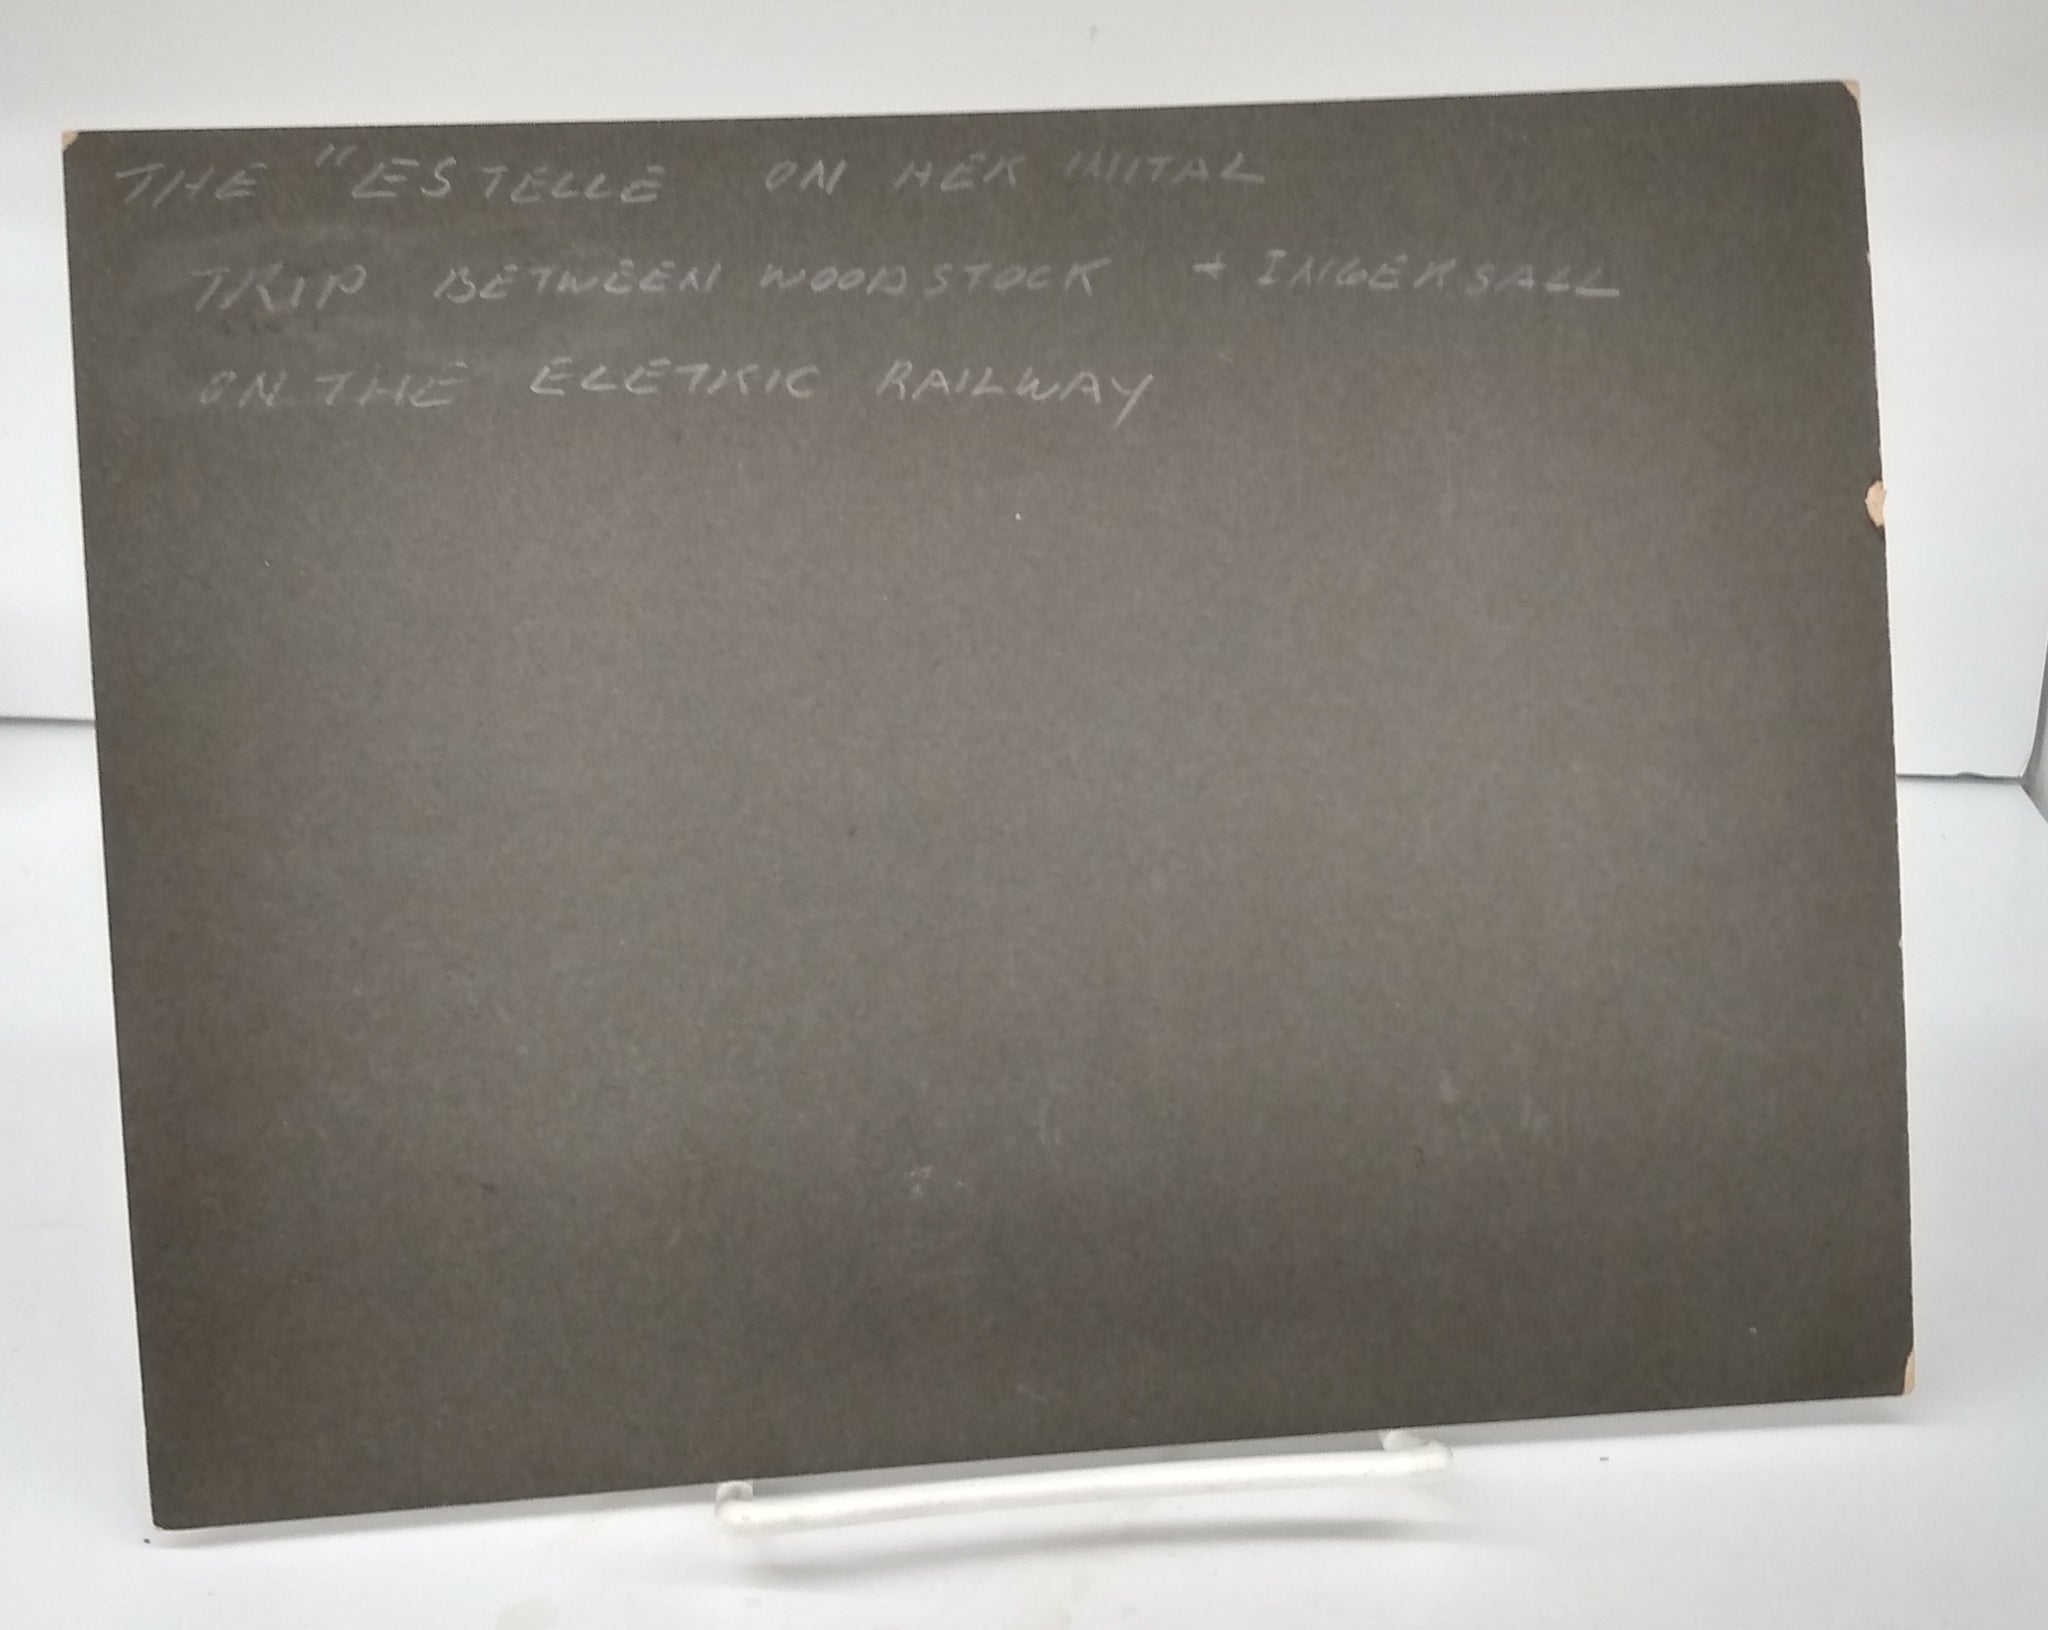 THE "ESTELLE ON HER INITAL
TRIP BETWEEN WOODSTOCK + INGERSALL
ON THE ELETRIC RAILWAY